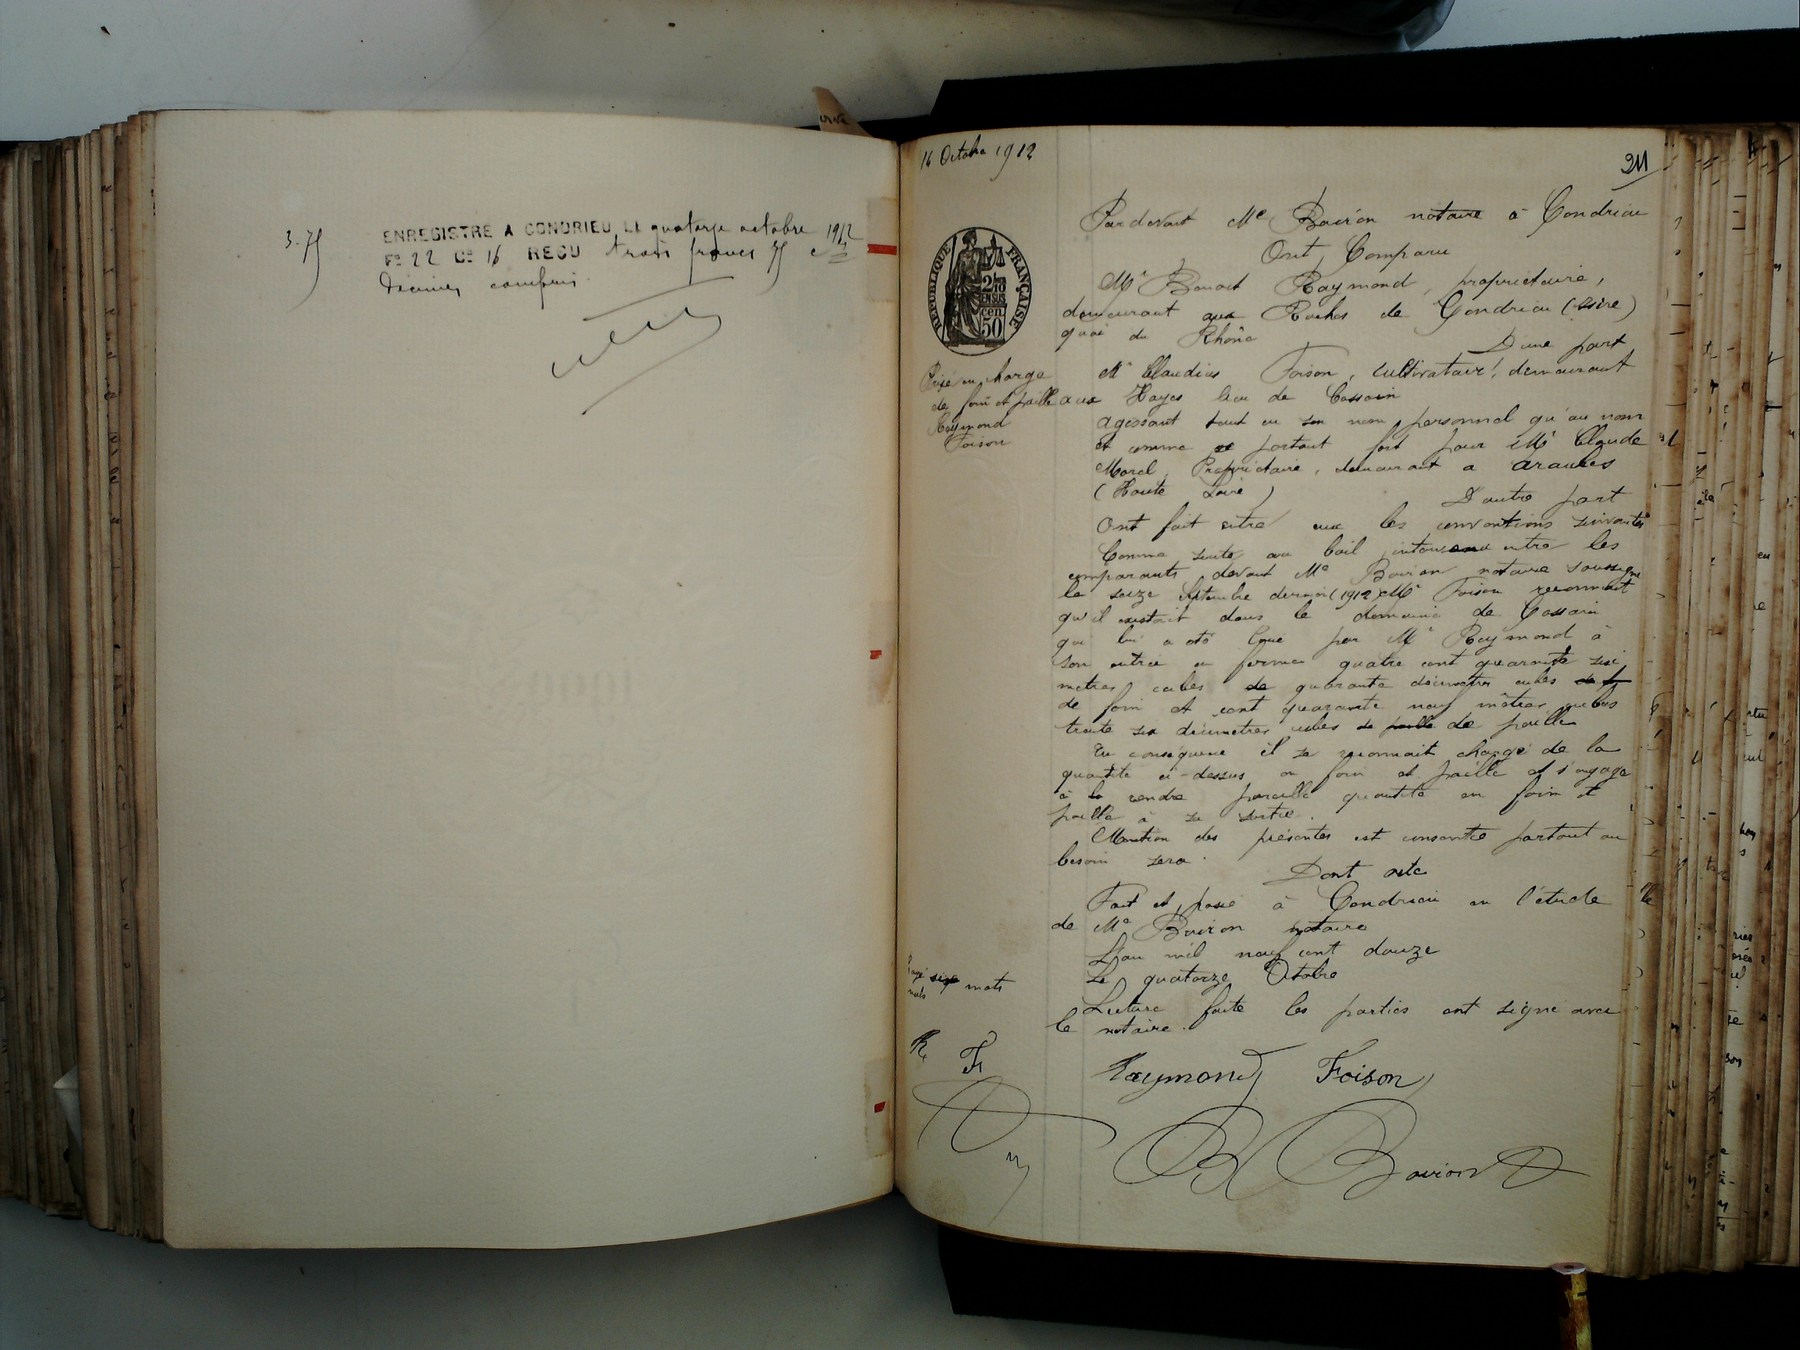 3.75
ENREGISTRE A CONDRIEU, LE quatorze octobre 1912
Fo 22 Ce 16 REÇU trois francs 75 c
Decimes compris
14 Octobre 1912
211
Pardevant Me Boiron notaire à Condrieu
Ont Comparu
RÉPUBLIQUE FRANÇAISE
2/10
EN SUS
cen.
50
Mr Benoit Raymond, propriétaire,
demeurant aux Roches de Condrieu (Isère)
quai du Rhône
D'une part
Prise en charge
de foin et paille
Raymond
Foison
Mr Claudius Foison, cultivateur, demeurant
aux Hayes lieu de Cossoin
agissant tant en son nom personnel qu'au nom
et comme se portant fort pour Mr Claude
Morel, Propriétaire, demeurant a araules
(Haute Loire)
D'autre part
Ont fait entre eux les conventions suivantes
Comme suite au bail intervenu entre les
comparants devant Me Boiron notaire soussigné
le seize septembre dernier (1912) Mr Foison reconnait
qu'il existait dans le domaine de Cossoin
qui lui a été loué par Mr Raymond à
son entrée en ferme quatre cent quarante six
mètres cubes de quarante décimètres cubes
de foin et cent quarante neuf mètres cubes
trente six décimètres cubes de paille de paille
En conséquence il se reconnait chargé de la
quantité ci-dessus en foin et paille et s'engage
à la rendre pareille quantité en foin et
paille à sa sortie.
Mention des présentes est consentie partout ou
besoin sera.
Dont acte
Fait et passé à Condrieu en l'étude
de Me Boiron notaire
L'an mil neuf cent douze
Le quatorze Octobre
Lecture faite les parties ont signé avec
le notaire.
Rayé six mots
mots
R F
Raymond Foison
Boiron